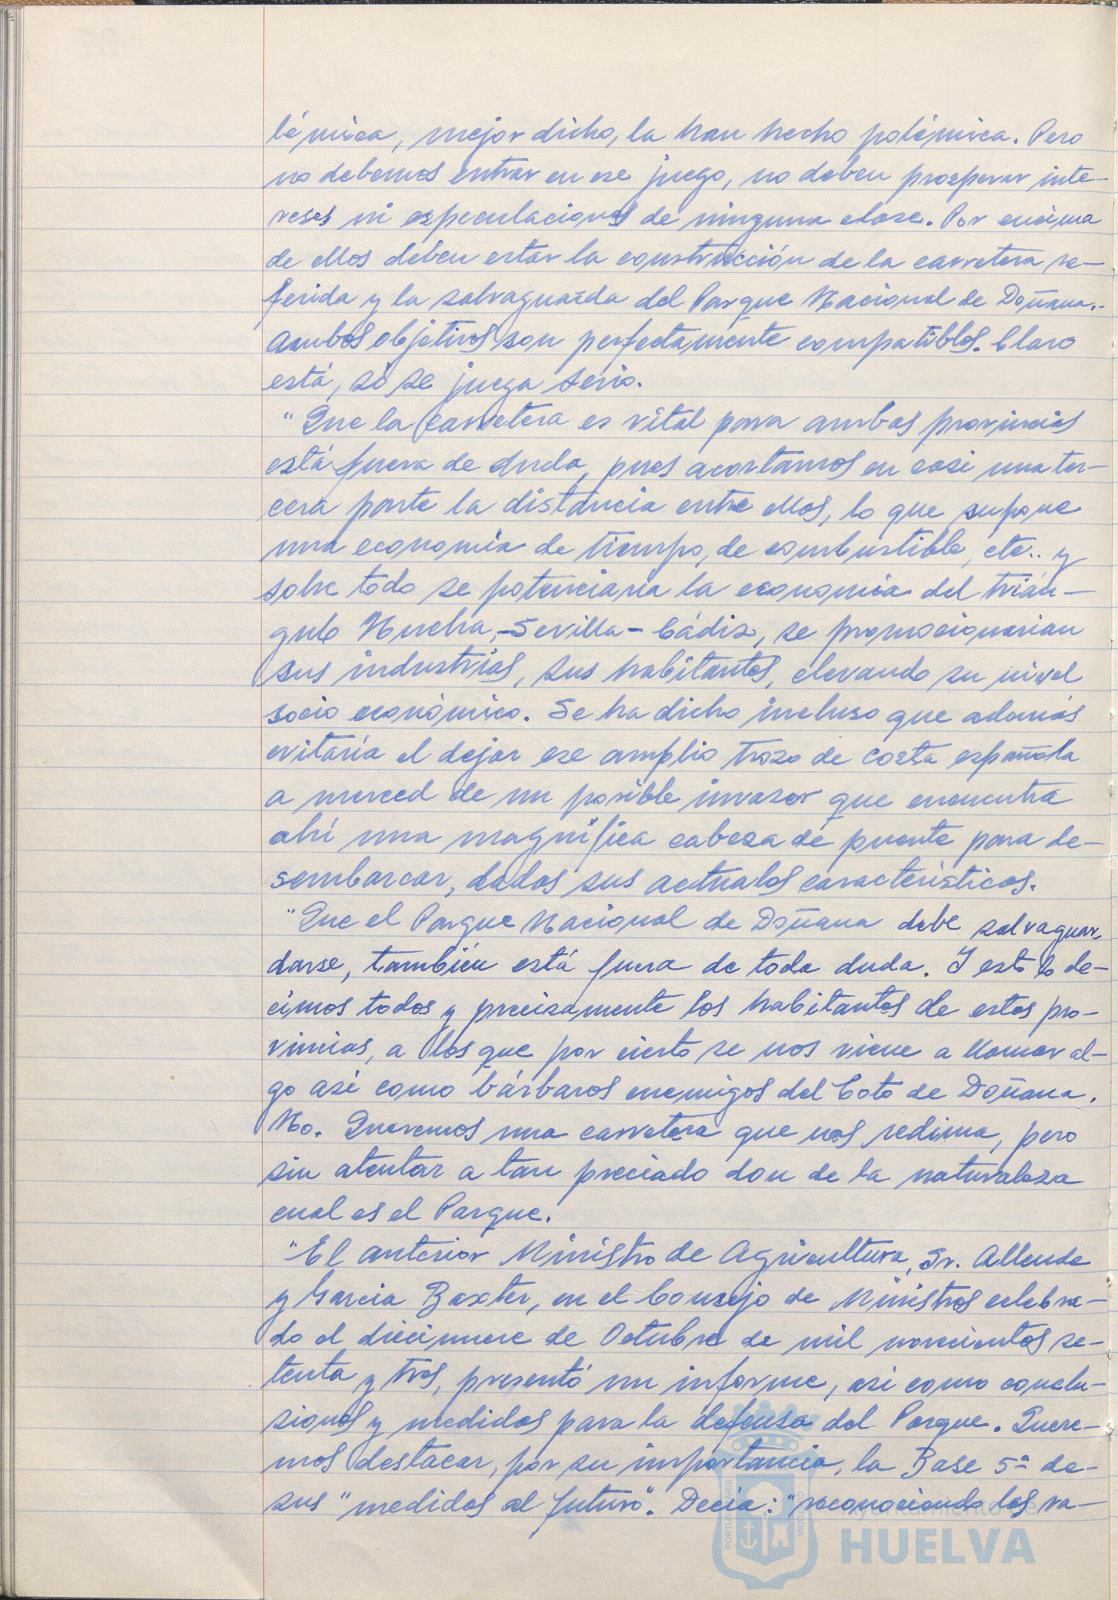 lémica, mejor dicho, la han hecho polémica. Pero
no debemos entrar en ese juego, no deben prosperar inte-
reses ni especulaciones de ninguna clase. Por encima
de ellos deben estar la construcción de la carretera re-
ferida y la salvaguarda del Parque Nacional de Doñana.-
Ambos objetivos son perfectamente compatibles. Claro
está, si se juega serio.
"Que la carretera es vital para ambas provincias
está fuera de duda, pues acortamos en casi una ter-
cera parte la distancia entre ellas, lo que supone
una economía de tiempo, de combustible, etc.. y
sobre todo se potenciaria la economía del trián-
gulo Huelva,-Sevilla-Cádiz, se promocionarian
sus industrias, sus habitantes, elevando su nivel
socio económico. Se ha dicho incluso que además
evitaría el dejar ese amplio trozo de costa española
a merced de un posible invasor que encuentra
ahí una magnífica cabeza de puente para de-
sembarcar, dadas sus actuales características.
"Que el Parque Nacional de Doñana debe salvaguar
darse, también está fuera de toda duda. Y esto lo de-
cimos todos y precisamente los habitantes de estas pro-
vincias, a los que por cierto se nos viene a llamar al-
go así como bárbaros enemigos del Coto de Doñana.
No. Queremos una carretera que nos redima, pero
sin atentar a tan preciado don de la naturaleza
cual es el Parque.
"El anterior Ministro de Agricultura, Sr. Allende
y Garcia Baxter, en el Consejo de Ministros celebra-
do el diecinueve de Octubre de mil novecientos se-
tenta y tres, presentó un informe, así como conclu-
siones y medidas para la defensa del Parque. Quere-
mos destacar, por su importancia, la Base 5ª de
sus "medidas al futuro". Decía: "reconociendo los va-
Ayuntamiento de
HUELVA